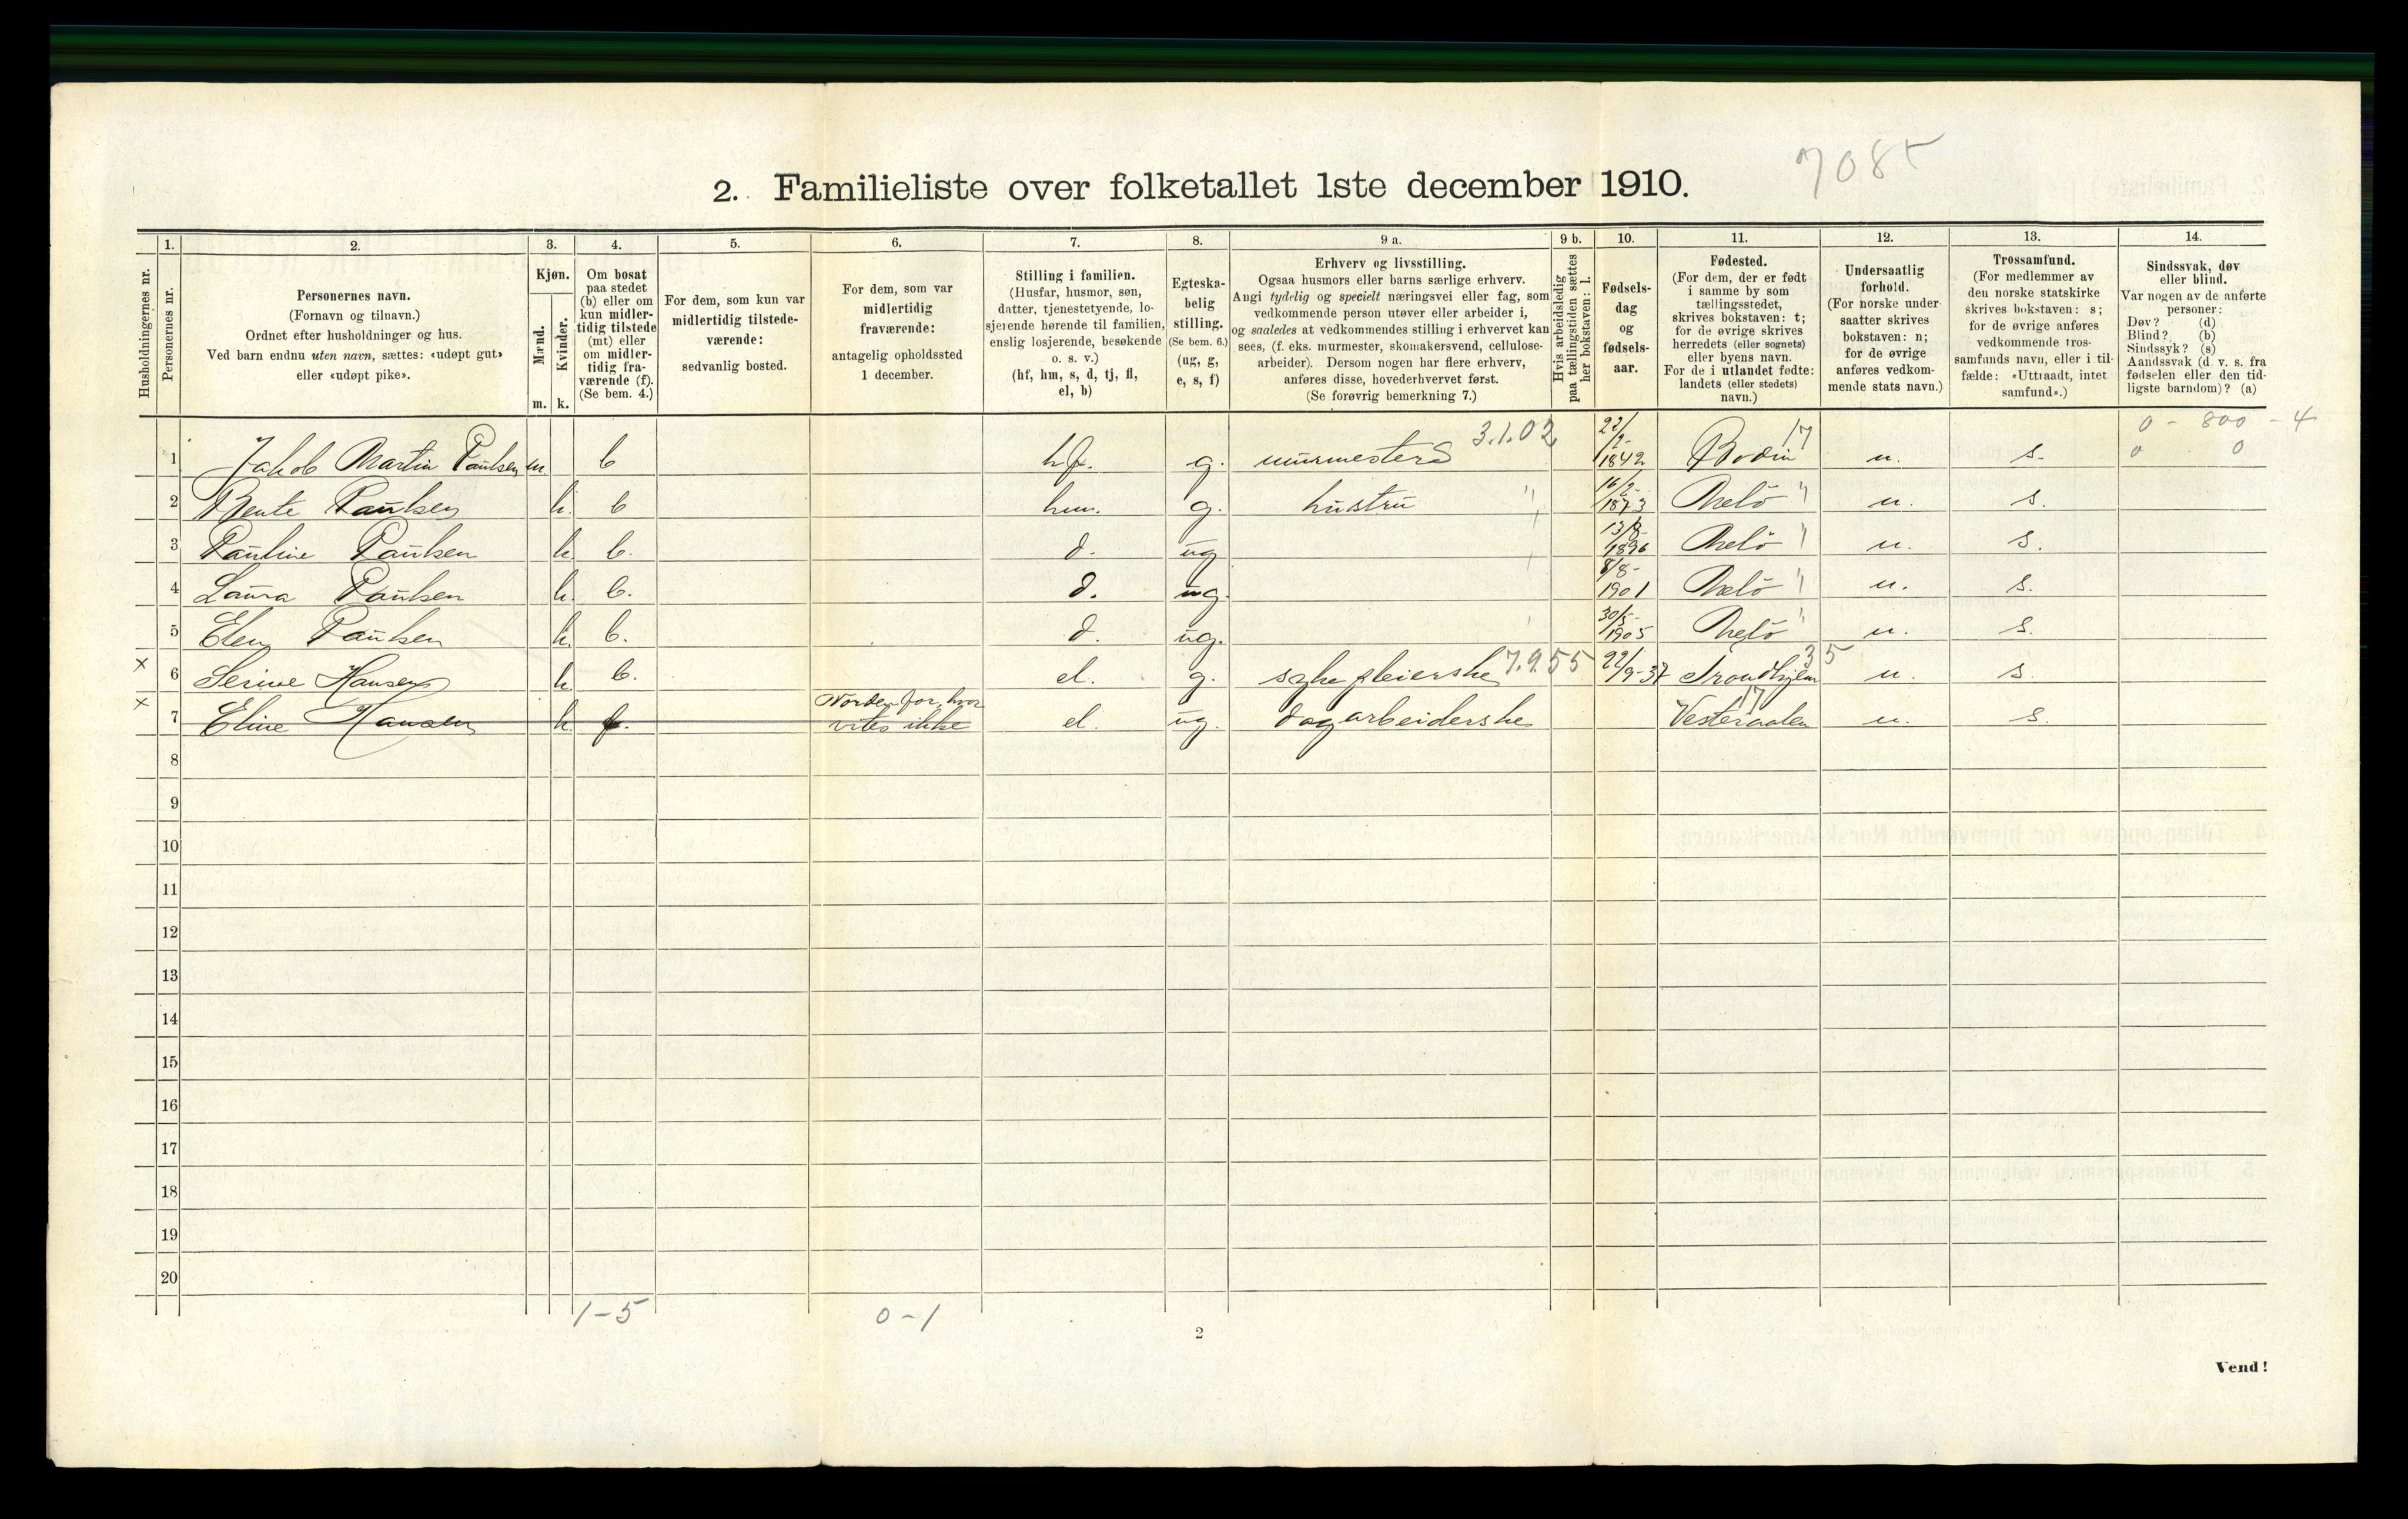 7085
2. Familieliste over folketallet 1ste december 1910.
Husholdningernes nr.
1. Personernes nr.
2. Personernes navn.
(Fornavn og tilnavn.)
Ordnet efter husholdninger og hus.
Ved barn endnu uten navn, sættes: «udøpt gut»
eller «udøpt pike».
3. Kjøn.
Mænd. m.
Kvinder. k.
4. Om bosat
paa stedet
(b) eller om
kun midler-
tidig tilstede
(mt) eller
om midler-
tidig fra-
værende (f).
(Se bem. 4.)
5. For dem, som kun var
midlertidig tilstede-
værende:
sedvanlig bosted.
6. For dem, som var
midlertidig
fraværende:
antagelig opholdssted
1 december.
7. Stilling i familien.
(Husfar, husmor, søn,
datter, tjenestetyende, lo-
sjerende hørende til familien,
enslig losjerende, besøkende
o. s. v.)
(hf, hm, s, d, tj, fl,
el, b)
8. Egteska-
belig
stilling.
(Se bem. 6.)
(ug, g,
e, s, f)
9 a. Erhverv og livsstilling.
Ogsaa husmors eller barns særlige erhverv.
Angi tydelig og specielt næringsvei eller fag, som
vedkommende person utøver eller arbeider i,
og saaledes at vedkommendes stilling i erhvervet kan
sees, (f. eks. murmester, skomakersvend, cellulose-
arbeider). Dersom nogen har flere erhverv,
anføres disse, hovederhvervet først.
(Se forøvrig bemerkning 7.)
9 b. Hvis arbeidsledig
paa tællingstiden sættes
her bokstaven: l.
10. Fødsels-
dag
og
fødsels-
aar.
11. Fødested.
(For dem, der er født
i samme by som
tællingsstedet,
skrives bokstaven: t;
for de øvrige skrives
herredets (eller sognets)
eller byens navn.
For de i utlandet fødte:
landets (eller stedets)
navn.)
12. Undersaatlig
forhold.
(For norske under-
saatter skrives
bokstaven: n;
for de øvrige
anføres vedkom-
mende stats navn.)
13. Trossamfund.
(For medlemmer av
den norske statskirke
skrives bokstaven: s;
for de øvrige anføres
vedkommende tros-
samfunds navn, eller i til-
fælde: «Uttraadt, intet
samfund».)
14. Sindssvak, døv
eller blind.
Var nogen av de anførte
personer:
Døv? (d)
Blind? (b)
Sindssyk? (s)
Aandssvak (d. v. s. fra
fødselen eller den tid-
ligste barndom)? (a)
0 - 800 - 4
1 Jakob Martin Paulsen m b hf. g. murmester 3.1.02 22/2-1842 Bodin 17 n. s. 0 0
2 Bente Paulsen k. b hm. g. hustru " 16/2-1873 Melö " n. s.
3 Pauline Paulsen k b. d. ug 13/8-1896 Melö " n. s.
4 Laura Paulsen k. b. d. ug. 8/8-1901 Melö " n. s.
5 Elen Paulsen k. b. d. ug. 30/5-1905 Melö " n. s.
x 6 Serine Hansen k b. el. g. sykepleierske 7.9.55 22/9-37 Trondhjem 35 n. s.
x 7 Eline Hansen k. f. Nordenfor, hvor
vites ikke el. ug. dagarbeiderske Vesteraalen 17 n. s.
8
9
10
11
12
13
14
15
16
17
18
19
20
1-5 0-1
2
Vend!